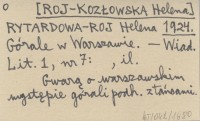 [ROJ-KOZŁOWSKA Helena]
RYTARDOWA-ROJ Helena 1924.
Górale w Warszawie. — Wiad.
Lit. 1, nr 7: , il.
Gwarą o warszawskim
występie górali podh. z tańcami.